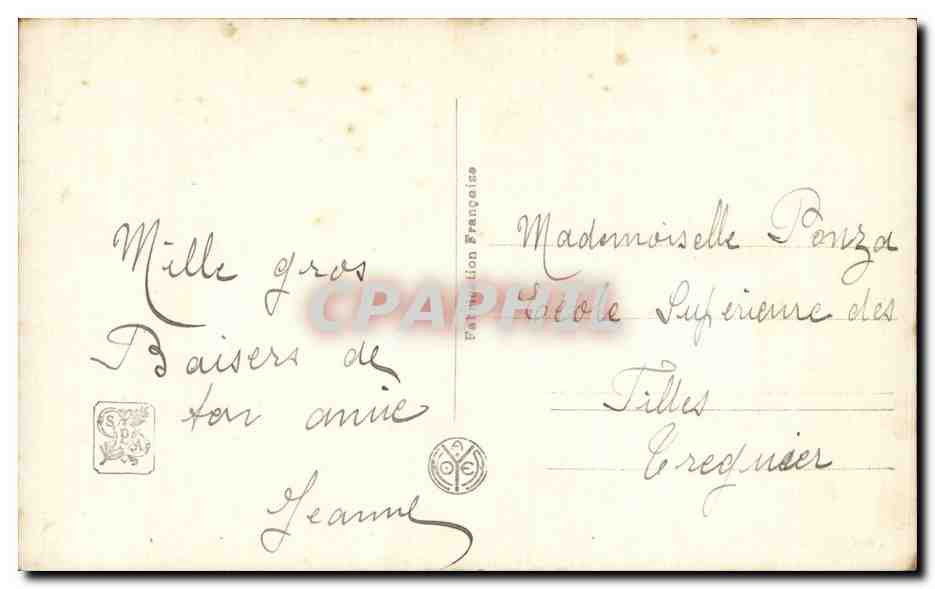 Mille gros
Baisers de
ton amie
Jeanne
Fabrication Française
Mademoiselle Ponza
Ecole Supérieure des
Filles
Treguier
CPAPHIL